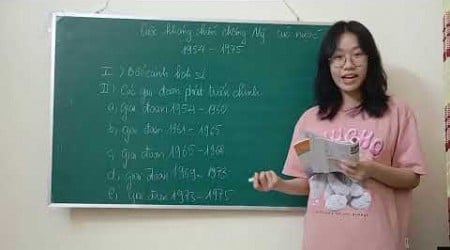 Cuộc kháng chiến chống Mỹ cứu nước
1954 - 1975
I) Bối cảnh lịch sử
II) Các giai đoạn phát triển chính
a, giai đoạn 1954 - 1960
b, giai đoạn 1961 - 1965
c, giai đoạn 1965 - 1968
d, giai đoạn 1969 - 1973
e, giai đoạn 1973 - 1975